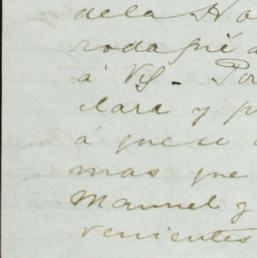 dela Ho
rodapié a
á VS - Por
clara y p
á que se
mas que
Manuel y
venientes